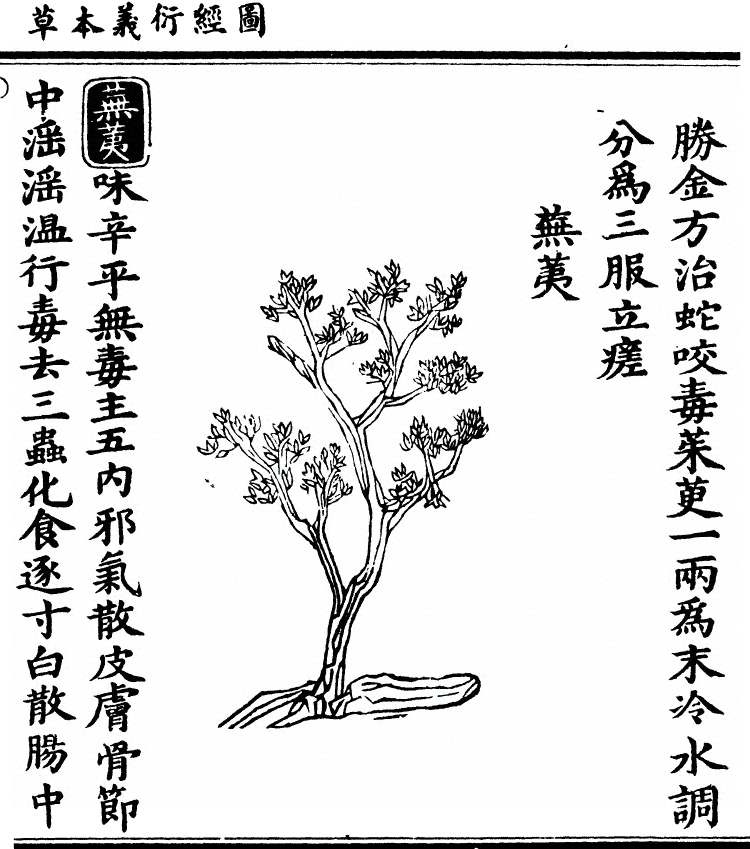 圖經衍義本草
勝金方治蛇咬毒茱萸一兩爲末冷水調
分爲三服立瘥
蕪荑
蕪荑味辛平無毒主五内邪氣散皮膚骨節
中滛滛温行毒去三蟲化食逐寸白散腸中